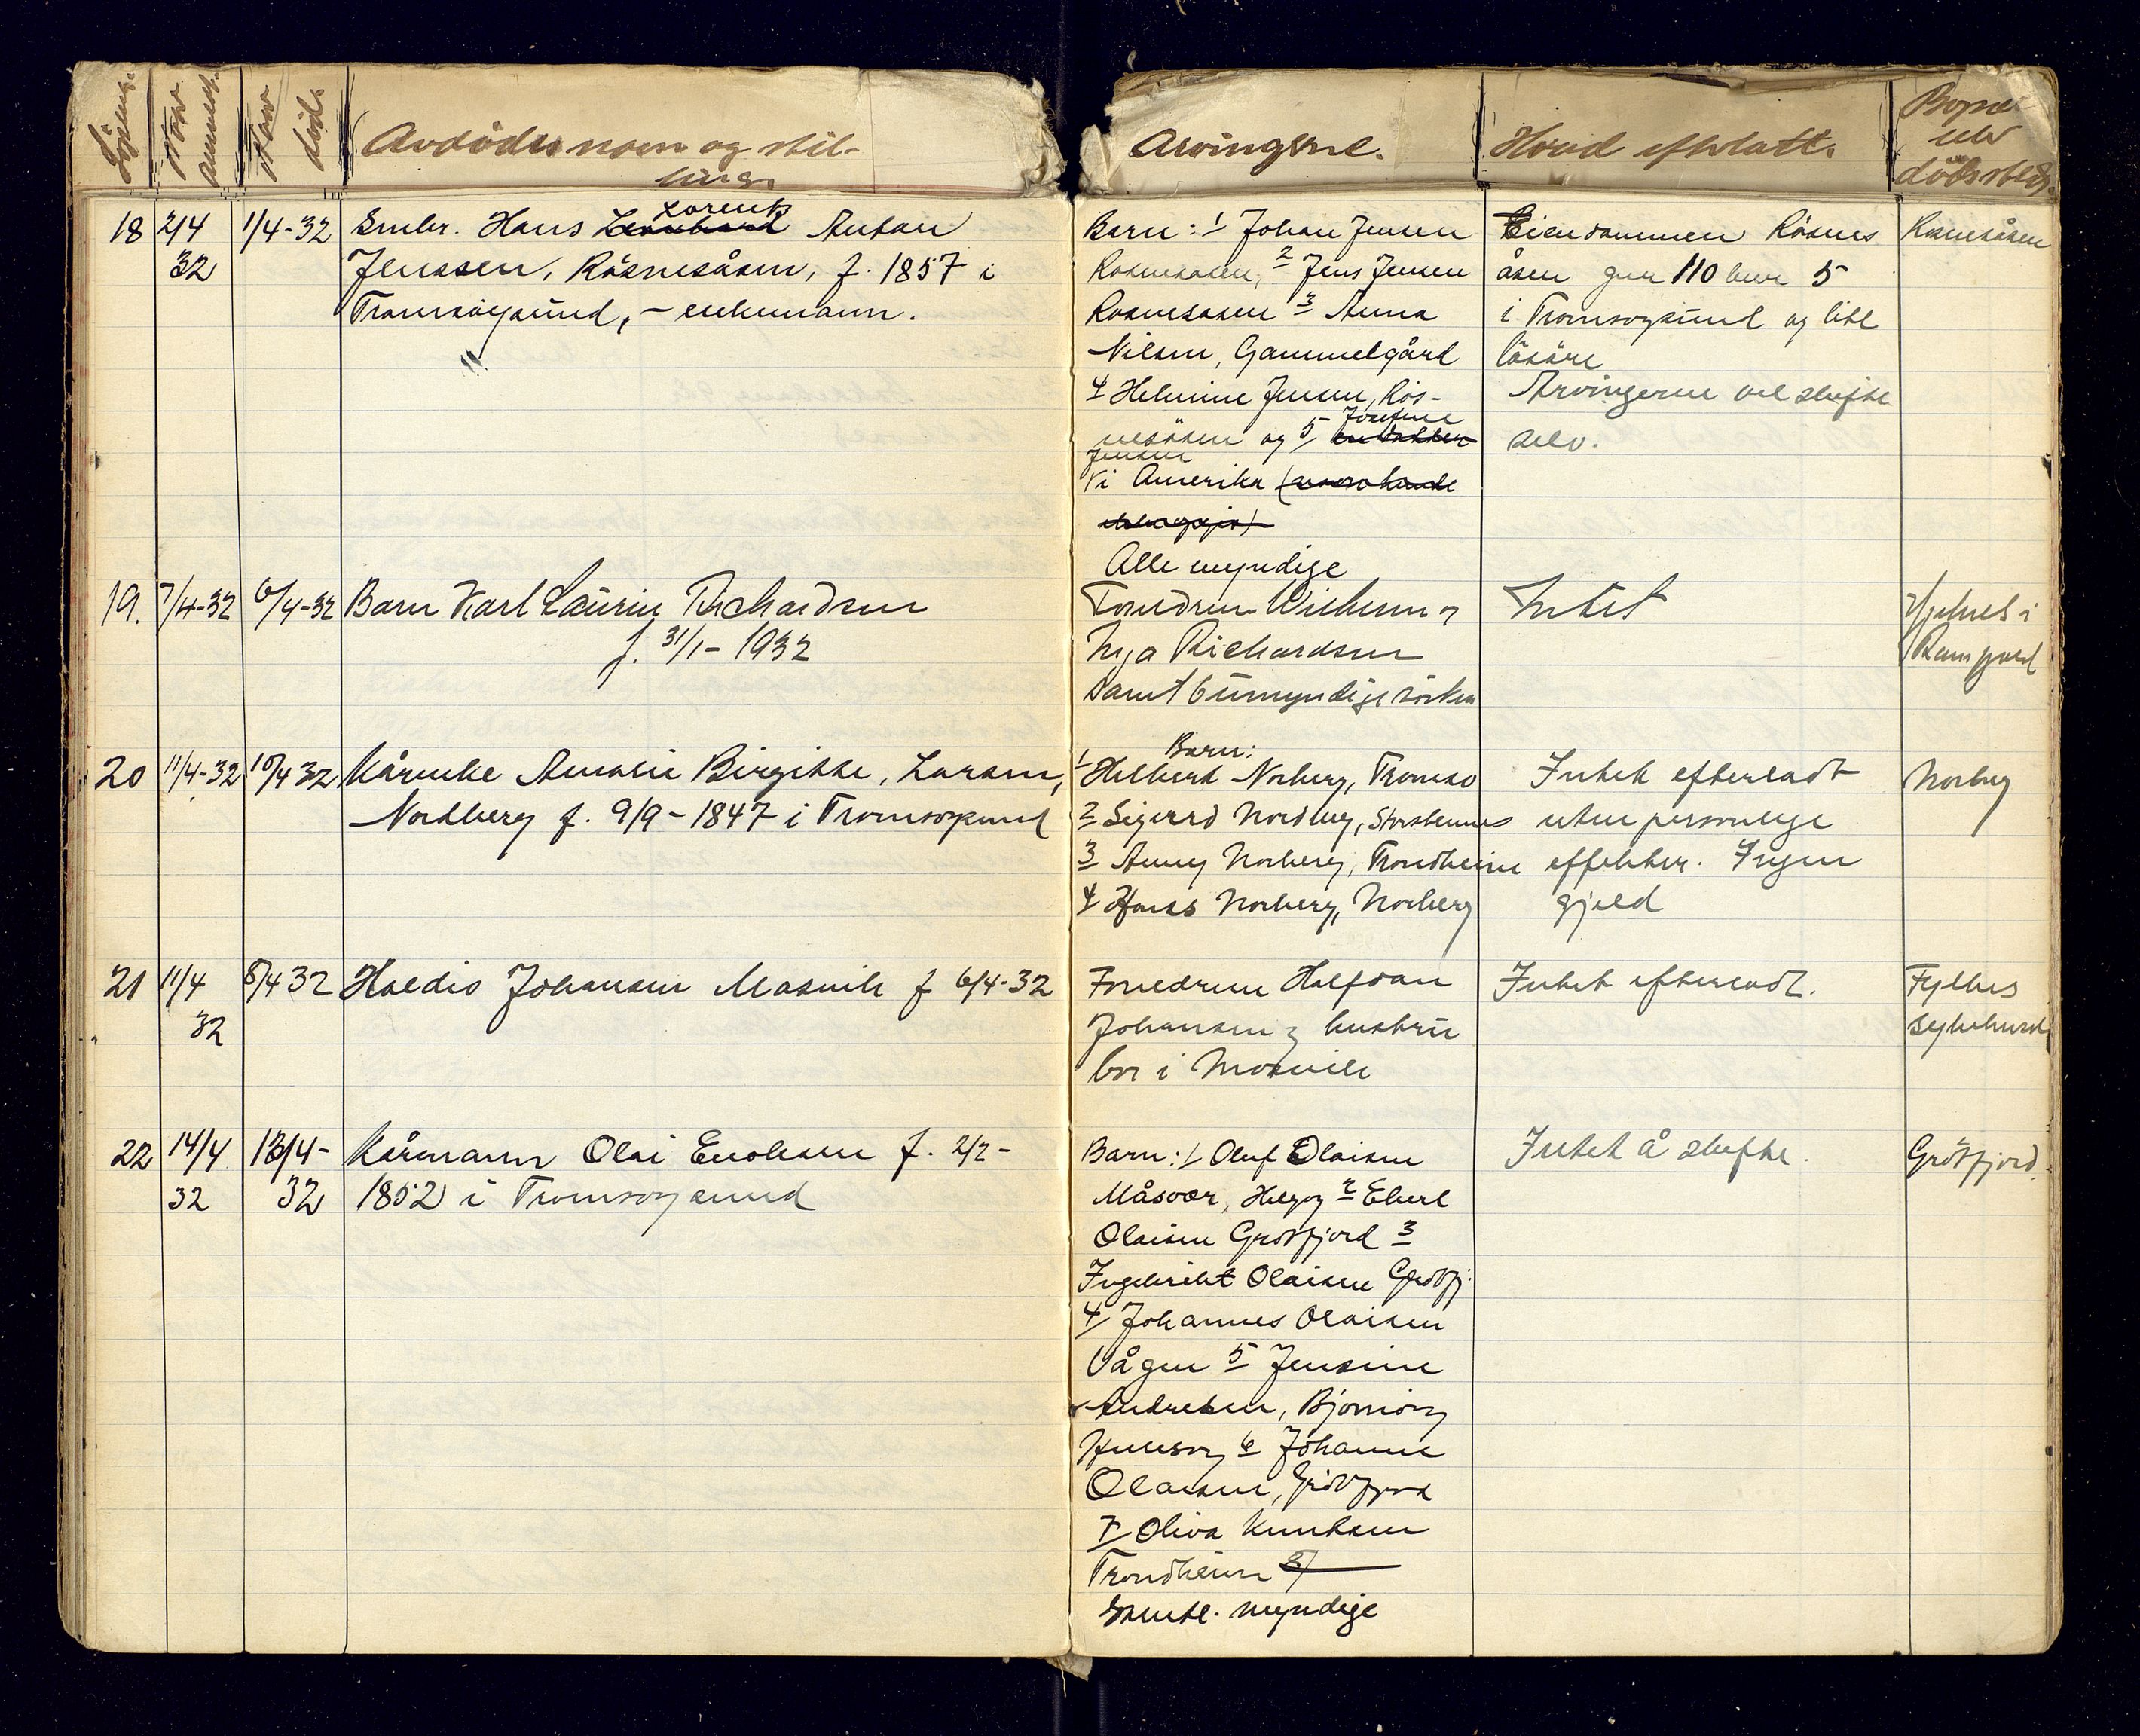 Löpenr.
Naar anmeldt.
Naar död.
Avdödes navn og stil-
ling.
Arvingerne.
Hvad efterlatt.
Bopæl
eller
dödssted.
18 2/4 32 1/4-32 Småbr. Hans Leonhard Lorentz Antan
Jenssen, Råsnesåsen, f. 1857 i
Tromsöysund, – enkemann.
Barn: 1 Johan Jensen
Rosnesåsen, 2 Jens Jensen
Rosnesåsen 3 Anna
Nilsen, Gammelgård
4 Helmine Jensen, Rös-
nesåsen og 5 Josefine en datter
Jensen
i Amerika
Alle myndige
Eiendommen Råsnes
åsen gnr 110 bnr 5
i Tromsoysund og litt
lösöre
Arvingerne vil skifte
selv.
Rosnesåsen
19. 7/4-32 6/4-32 Barn Karl Laurin Richardsen
f. 31/1-1932
Foreldrene Wilhelm og
Inga Richardsen
samt 6 umyndige sösken
Intet
Hjelnes i
Ramfjord
20 11/4-32 10/4 32 Kårenke Amalie Birgitte, Larsen,
Nordberg f. 9/9-1847 i Tromsoysund
Barn:
1 Hilbert Norberg, Tromso
2 Sigurd Nordberg, Storstennes
3 Anny Norberg, Trondheim
4 Hans Norberg, Norberg
Intet efterladt
uten personlige
effekter. Ingen
gjeld
Norberg
21 11/4 32 8/4 32 Haldis Johansen Masvik f 6/4-32
Foreldrene Halfdan
Johansen og hustru
bor i Masvik
Intet efterladt.
Fylkes
sykehuset
22 14/4 32 13/4-32 Kårmann Olai Enoksen f. 2/2-
1852 i Tromsoysund
Barn: 1/ Oluf Olaisen
Måsvær, Helgoy 2 Ebert
Olaisen Grötfjord 3
Ingebrikt Olaisen Grötfj.
4/ Johannes Olaisen
Vågen 5 Jensine
Andreasen, Bjornöy
Helgöy 6 Johanne
Olaisen, Grötfjord
7/ Oliva Knutsen
Trondheim 8/
Samtl. myndige
Intet å skifte.
Grötfjord.